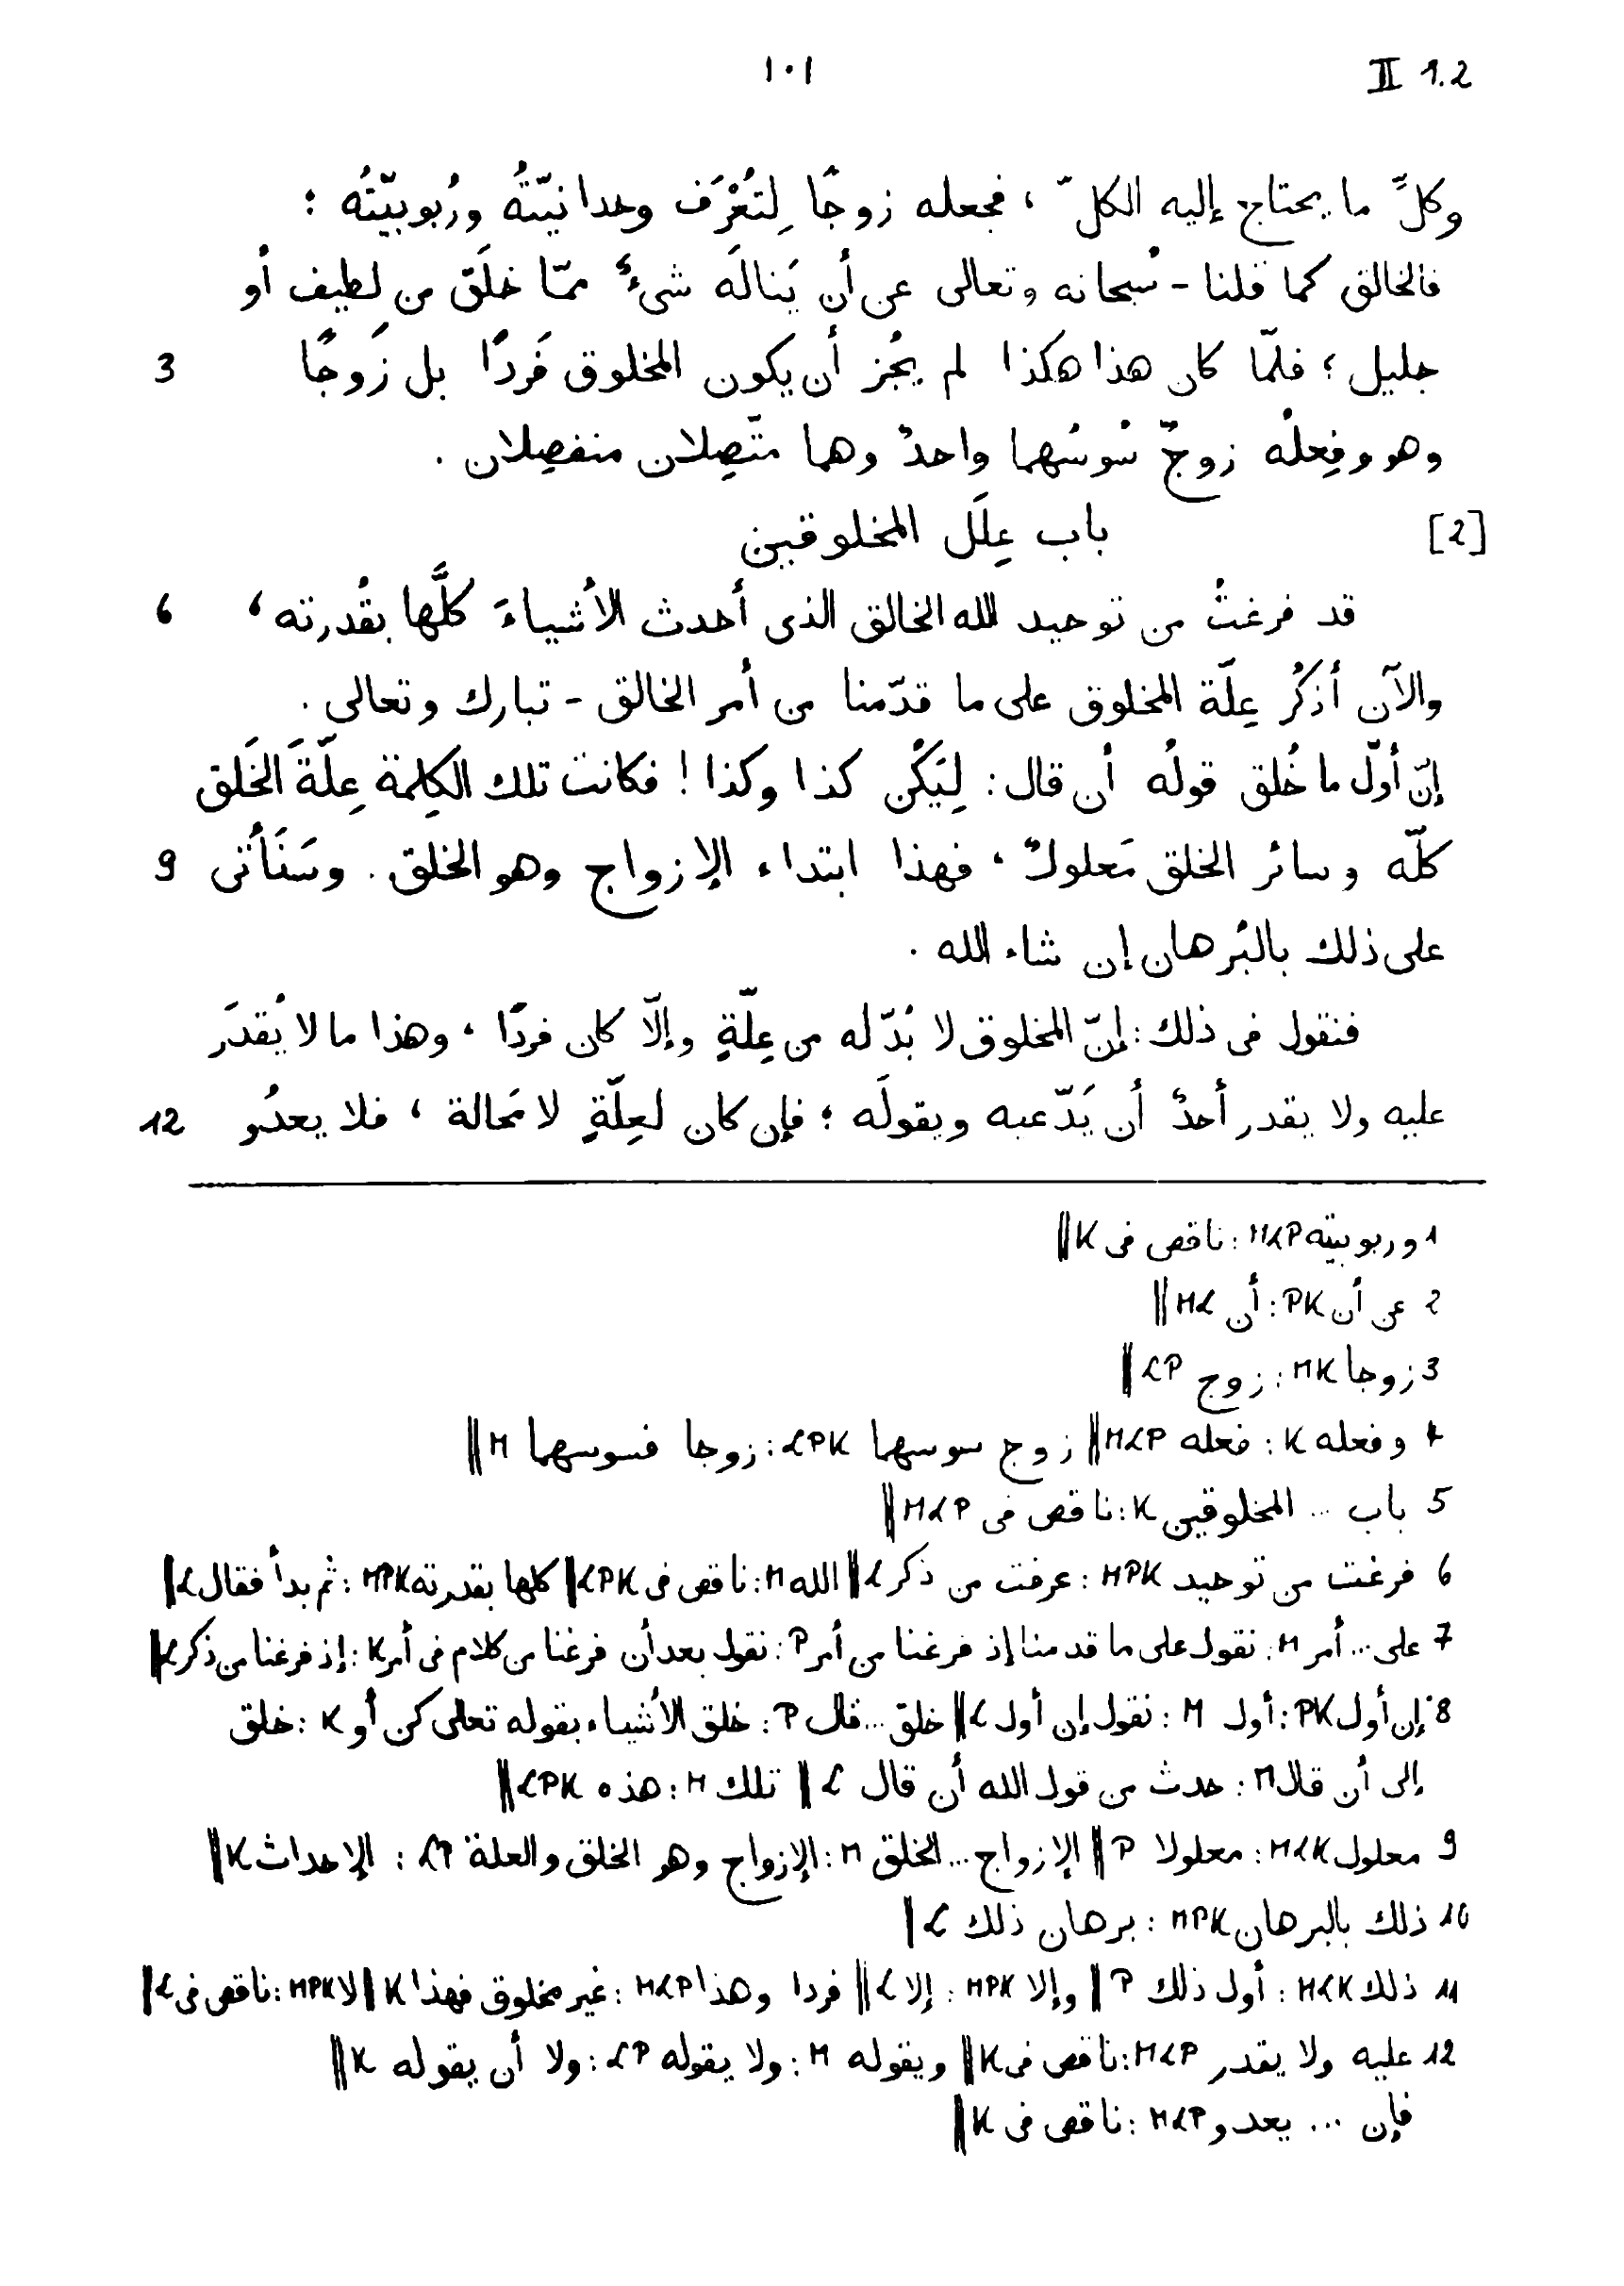 II 1.2
١٠١
وكلَّ ما يحتاج إليه الكلّ ، فجعله زوجًا لِتُعْرَف وحدانيّتُه ورُبوبيّتُه :
فالخالق كما قلنا - سُبحانه وتعالى عن أن يَنالَه شىءٌ ممّا خلَق من لطيف أو
جليل ؛ فلمّا كان هذا هكذا لم يجُز أن يكون المخلوق فَردًا بل زَوجًا 3
وهو وفِعلُه زوجٌ سُوسُهما واحدٌ وهما متّصِلان منفصِلان .
[2] باب عِلَل المخلوقين
قد فرغتُ من توحيد الله الخالق الذى أحدث الأشياءَ كلَّها بقُدرته ، 6
والآن أذكُر عِلّة المخلوق على ما قدّمنا من أمر الخالق - تبارك وتعالى .
إنّ أوّل ما خُلق قولُه أن قال : لِيَكُن كذا وكذا ! فكانت تلك الكِلمة عِلّةَ الخَلق
كلّه وسائر الخلق مَعلولٌ ، فهذا ابتداء الإزواج وهو الخلق . وسَنَأتى 9
على ذلك بالبُرهان إن شاء الله .
فنقول فى ذلك : إنّ المخلوق لا بُدّ له من عِلّةٍ وإلّا كان فردًا ، وهذا ما لا يُقدَر
عليه ولا يقدر أحدٌ أن يَدّعيه ويقولَه ؛ فإن كان لعِلّةٍ لا مَحالة ، فلا يعدُو 12
1 وربوبيته MLP : ناقص فى K ||
2 عن أن PK : أن ML ||
3 زوجا MK : زوج LP ||
4 وفعله K : فعله MLP || زوج سوسهما LPK : زوجا فسوسهما M ||
5 باب ... المخلوقين K : ناقص فى MLP ||
6 فرغت من توحيد MPK : عرفت من ذكر L || الله M : ناقص فى LPK || كلها بقدرته MPK : ثم بدأ فقال L ||
7 على ... أمر M : نقول على ما قدمنا إذ فرغنا من أمر P : نقول بعد أن فرغنا من كلام فى أمر K : إذ فرغنا من ذكر L ||
8 إن أول PK : أول M : نقول إن أول L || خلق ... قال P : خلق الأشياء بقوله تعالى كن أو K : خلق
إلى أن قال M : حدث من قول الله أن قال L || تلك M : هذه LPK ||
9 معلول MLK : معلولا P || الإزواج ... الخلق M : الإزواج وهو الخلق والعلة LP : الإحداث K ||
10 ذلك بالبرهان MPK : برهان ذلك L ||
11 ذلك MLK : أول ذلك P || وإلا MPK : إلا L || فردا وهذا MLP : غير مخلوق فهذا K || لا MPK : ناقص فى L ||
12 عليه ولا يقدر MLP : ناقص فى K || ويقوله M : ولا يقوله LP : ولا أن يقوله K ||
فإن ... يعدو MLP : ناقص فى K ||